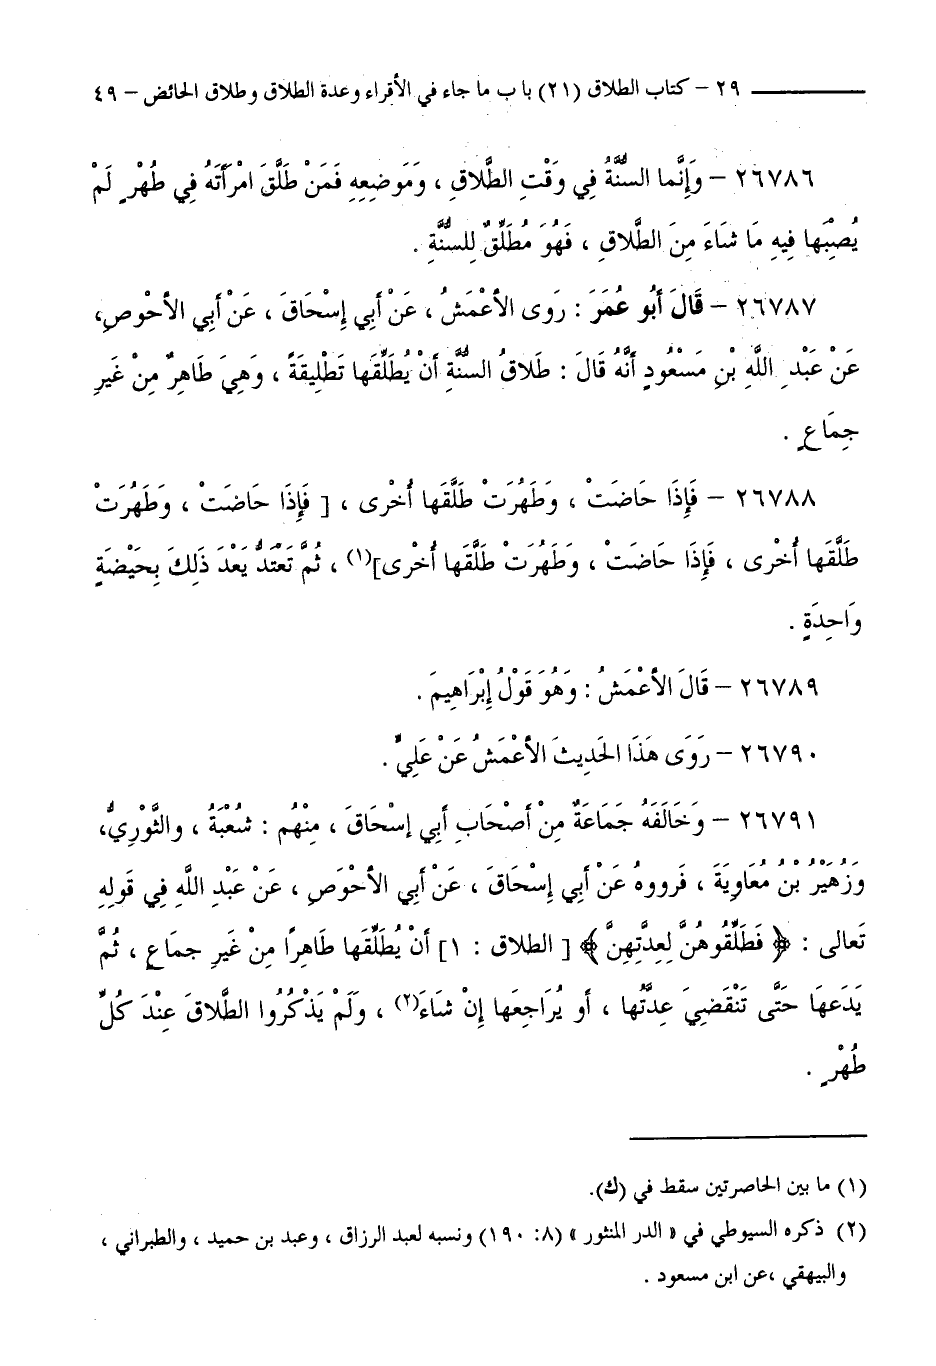 ٢٩ – كتاب الطلاق (٢١) باب ما جاء في الأقراء وعدة الطلاق وطلاق الحائض – ٤٩
٢٦٧٨٦ – وَإِنَّما السُنَّةُ فِي وَقْتِ الطَّلاقِ ، وَمَوضِعِهِ فَمَنْ طَلَّقَ امْرَأَتَهُ فِي طُهْرٍ لَمْ
يُصِبْها فِيهِ مَا شاءَ مِنَ الطَّلاقِ ، فَهُوَ مُطَلِّقٌ لِلسُنَّةِ .
٢٦٧٨٧ – قَالَ أَبُو عُمَرَ : رَوى الأعْمَشُ ، عَنْ أَبِي إِسْحَاقَ ، عَنْ أَبِي الأحْوصِ،
عَنْ عَبْدِ اللَّهِ بْنِ مَسْعُودٍ أَنَّهُ قَالَ : طَلاقُ السُنَّةِ أَنْ يُطَلِّقَها تَطْلِيقَةً ، وَهِيَ طَاهِرٌ مِنْ غَيرِ
جِمَاعٍ .
٢٦٧٨٨ – فَإِذَا حَاضَتْ ، وَطَهُرَتْ طَلَّقَها أُخْرى ، [ فَإِذَا حَاضَتْ ، وَطَهُرَتْ
طَلَّقَها أُخْرى ، فَإِذَا حَاضَتْ ، وَطَهُرَتْ طَلَّقَها أُخْرى](١) ، ثُمَّ تَعْتَدُّ بَعْدَ ذَلِكَ بِحَيْضَةٍ
وَاحِدَةٍ .
٢٦٧٨٩ – قَالَ الأعْمَشُ : وَهُوَ قَوْلُ إِبْرَاهِيمَ .
٢٦٧٩٠ – رَوَى هَذَا الحَدِيثَ الأعْمَشُ عَنْ عَلِيٍّ .
٢٦٧٩١ – وَخَالَفَهُ جَمَاعَةٌ مِنْ أَصْحَابِ أَبِي إِسْحَاقَ ، مِنْهُم : شُعْبَةُ ، والثَّوْرِيُّ،
وَزُهَيْرُ بْنُ مُعَاوِيَةَ ، فَرووهُ عَنْ أَبِي إِسْحَاقَ ، عَنْ أَبِي الأحْوَصِ ، عَنْ عَبْدِ اللَّهِ فِي قَولِهِ
تَعالى : ﴿ فَطَلِّقُوهُنَّ لِعِدَّتِهِنَّ ﴾ [ الطلاق : ١] أَنْ يُطَلِّقَها طَاهِرًا مِنْ غَيرِ جمَاعٍ ، ثُمَّ
يَدَعَها حَتَّى تَنْقَضِيَ عِدَّتُها ، أو يُرَاجِعَها إِنْ شَاءَ(٢) ، وَلَمْ يَذْكُرُوا الطَّلاقَ عِنْدَ كُلِّ
طُهْرٍ .
(١) ما بين الحاصرتين سقط في (ك).
(٢) ذكره السيوطي في « الدر المنثور » (٨: ١٩٠) ونسبه لعبد الرزاق ، وعبد بن حميد ، والطبراني ،
والبيهقي ،عن ابن مسعود .